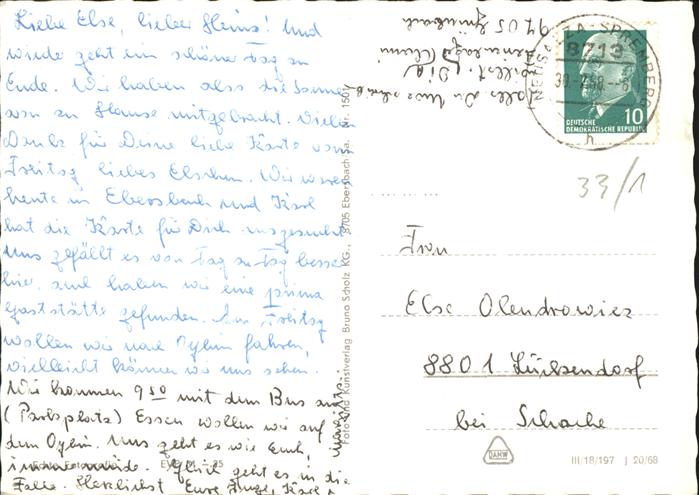 Liebe Else, lieber Heinz! Und
wieder geht ein schöner Tag zu
Ende. Wir haben also die Sonne
von zu Hause mitgebracht. Vielen
Dank für Deine liebe Karte vom
Freitag liebes Elschen. Wir waren
heute in Ebersbach und Karl
hat die Karte für Dich ausgesucht
Uns gefällt es von Tag zu Tag besser
hier, und haben wir eine prima
Gaststätte gefunden. Am Freitag
wollen wir nach Oybin fahren,
vielleicht können wir uns sehen.
Wir kommen 9 50 mit dem Bus an
(Parkplatz) Essen wollen wir auf
dem Oybin. Uns geht es wie Euch,
immer müde. Gleich geht es in die
Falle. Herzlichst Eure Inge, Karl
Echte Fotografie
EV M 25
Foto und Kunstverlag Bruno Scholz KG., 8705 Ebersbach Sa. Nr. 1501
9405
willst.
8713
30.-7.68.--6
h
10
DEUTSCHE
DEMOKRATISCHE REPUBLIK
33/1
Frau
Else Olendrowicz
8801 Lückendorf
bei Schache
DAHW
III/18/197 J 20/68